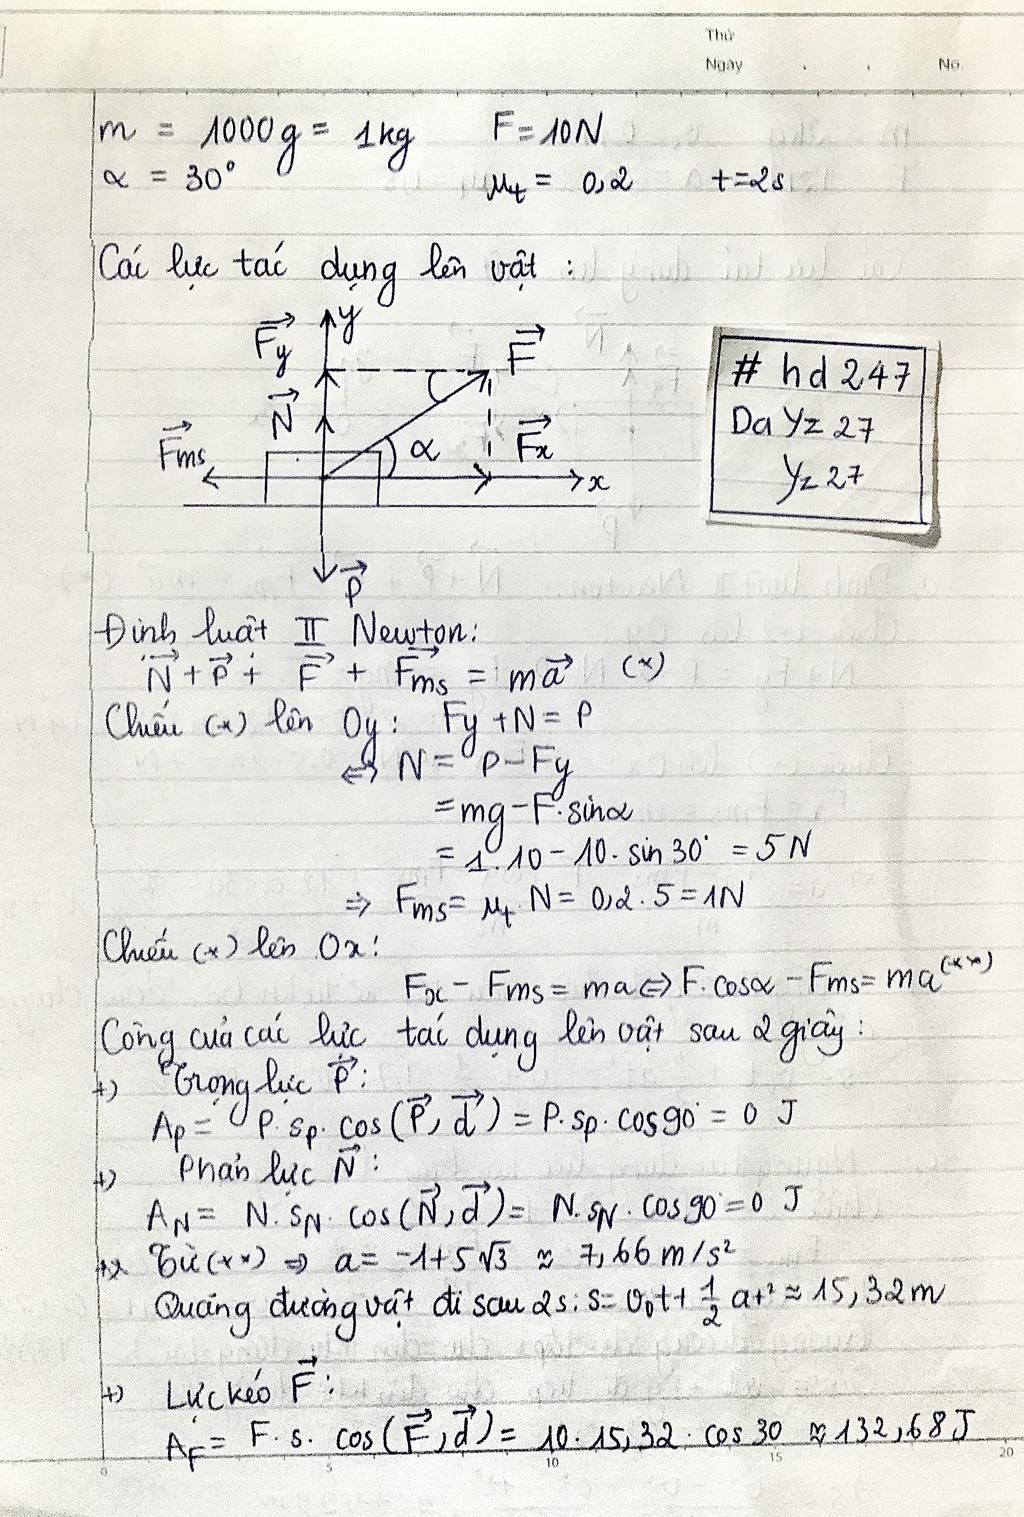 Thứ
Ngày . . No.
m = 1000g = 1kg F = 10N
α = 30° μt = 0,2 t=2s
Các lực tác dụng lên vật :
y
Fy
F
N
Fms
α
Fx
x
P
# hd 247
Da Yz 27
Yz 27
Định luật II Newton:
N + P + F + Fms = ma (x)
Chiếu (x) lên Oy: Fy + N = P
⇔ N = P - Fy
= mg - F.sinα
= 1.10 - 10. sin 30° = 5 N
⇒ Fms = μt . N = 0,2 . 5 = 1N
Chiếu (x) lên Ox:
Fx - Fms = ma ⇔ F.cosα - Fms = ma (xx)
Công của các lực tác dụng lên vật sau 2 giây :
+) Trọng lực P:
Ap = P. sp. cos(P, d) = P. sp. cos90° = 0 J
+) Phản lực N :
AN = N. sN. cos(N, d) = N. sN. cos90° = 0 J
+) Từ (xx) ⇒ a = -1+5√3 ≈ 7,66 m/s²
Quãng đường vật đi sau 2s: s = v₀t + 1/2 at² ≈ 15,32m
+) Lực kéo F:
AF = F. s. cos(F, d) = 10. 15,32. cos 30 ≈ 132,68 J
0 5 10 15 20